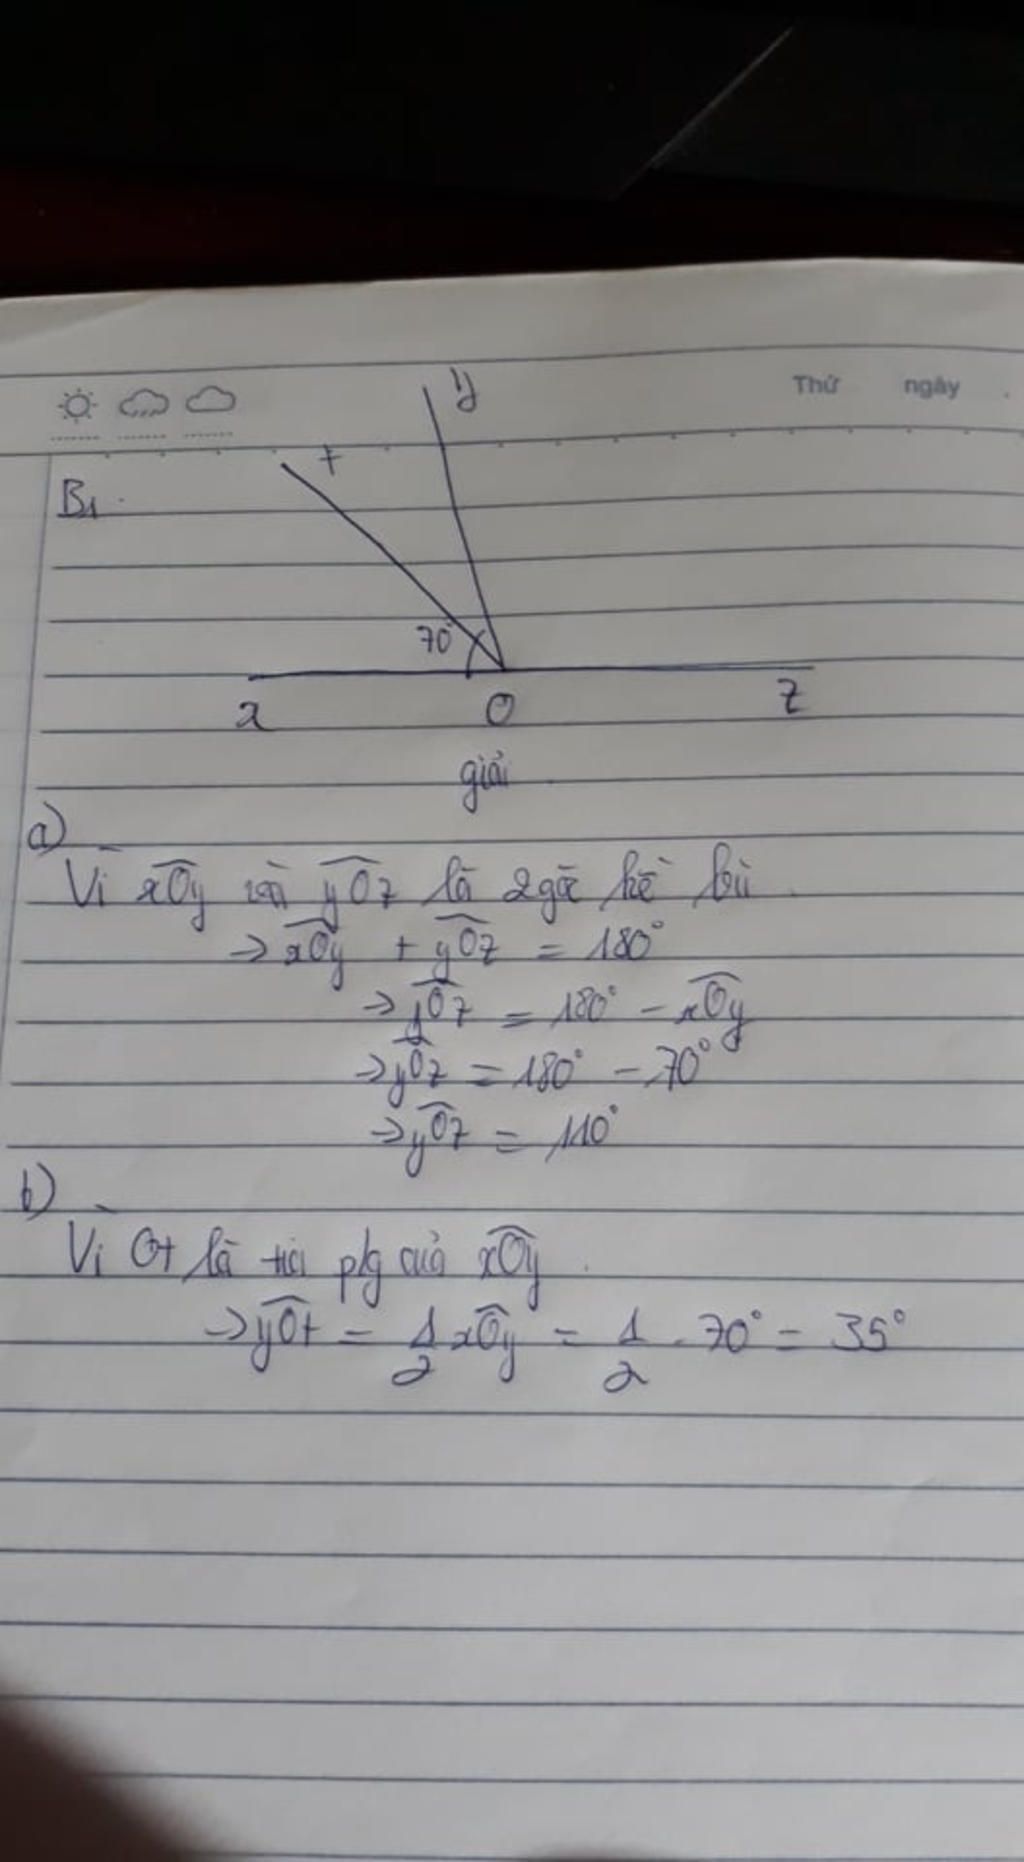 Thứ ngày
y
t
B1.
70°
x O z
giải
a)
Vì xOy và yOz là 2 góc kề bù
→ xOy + yOz = 180°
→ yOz = 180° - xOy
→ yOz = 180° - 70°
→ yOz = 110°
b)
Vì Ot là tia p/g của xOy.
→ yOt = 1/2 xOy = 1/2 . 70° = 35°